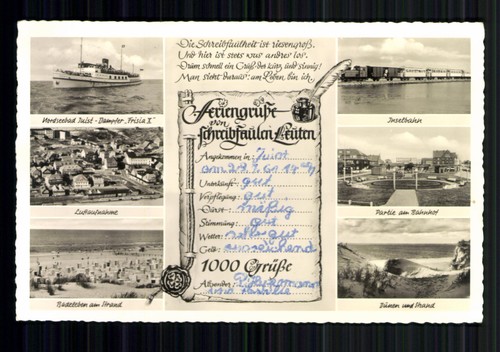 Die Schreibfaulheit ist riesengroß,
Und hier ist stets was andres los.
Drum schnell ein Gruß, der kurz und sinnig!
Man sieht daraus: am Leben bin ich.
Nordseebad Juist - Dampfer „Frisia X"
Luftaufnahme
Badeleben am Strand
Feriengrüße
von
schreibfaulen Leuten
Angekommen in: Juist
am 29.7.61
Unterkunft: gut
Verpflegung: gut
Durst: mäßig
Stimmung: gut
Wetter: sehr gut
Geld: ausreichend
1000 Grüße
Absender:
und
Inselbahn
Partie am Bahnhof
Dünen und Strand